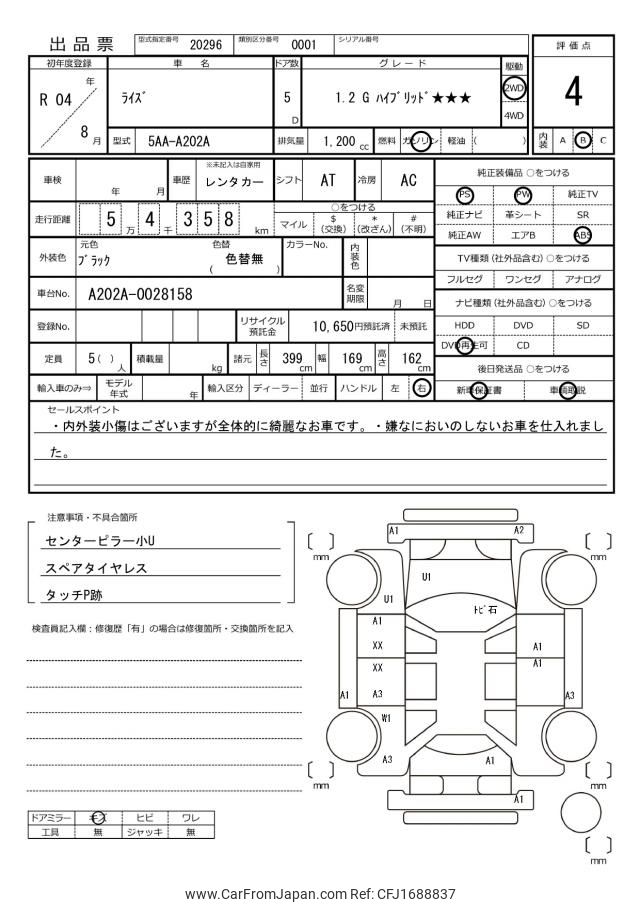 出品票 型式指定番号 20296 類別区分番号 0001 シリアル番号
評価点
4
初年度登録 車名 ドア数 グレード 駆動
R 04 年 8 月
ライズ 5 D 1.2 G ハイブリッド★★★ 2WD
4WD
型式 5AA-A202A 排気量 1,200 cc 燃料 ガソリン 軽油 ( ) 内装 A B C
車検 年 月 車歴 ※未記入は自家用 レンタカー シフト AT 冷房 AC
純正装備品 ○をつける
PS PW 純正TV
純正ナビ 革シート SR
純正AW エアB ABS
走行距離 5 万 4 千 3 5 8 km
○をつける
マイル $ (交換) * (改ざん) # (不明)
外装色 元色 ブラック 色替 ( 色替無 ) カラーNo. 内装色
TV種類 (社外品含む) ○をつける
フルセグ ワンセグ アナログ
車台No. A202A-0028158 名変期限 月 日
ナビ種類 (社外品含む) ○をつける
HDD DVD SD
DVD再生可 CD
登録No. リサイクル預託金 10,650円預託済 未預託
定員 5( ) 人 積載量 kg 諸元 長さ 399 cm 幅 169 cm 高さ 162 cm
後日発送品 ○をつける
新車保証書 車輌取説
輸入車のみ⇒ モデル年式 年 輸入区分 ディーラー 並行 ハンドル 左 右
セールスポイント
・内外装小傷はございますが全体的に綺麗なお車です。・嫌なにおいのしないお車を仕入れまし
た。
注意事項・不具合箇所
センターピラー小U
スペアタイヤレス
タッチP跡
検査員記入欄：修復歴「有」の場合は修復箇所・交換箇所を記入
A1 A2
mm mm
U1
U1
トビ石
A1
XX
A1
XX
A1
A1
A3
A3
W1
A3
A1
mm mm
A1
mm
ドアミラー キズ ヒビ ワレ
工具 無 ジャッキ 無
www.CarFromJapan.com Ref: CFJ1688837